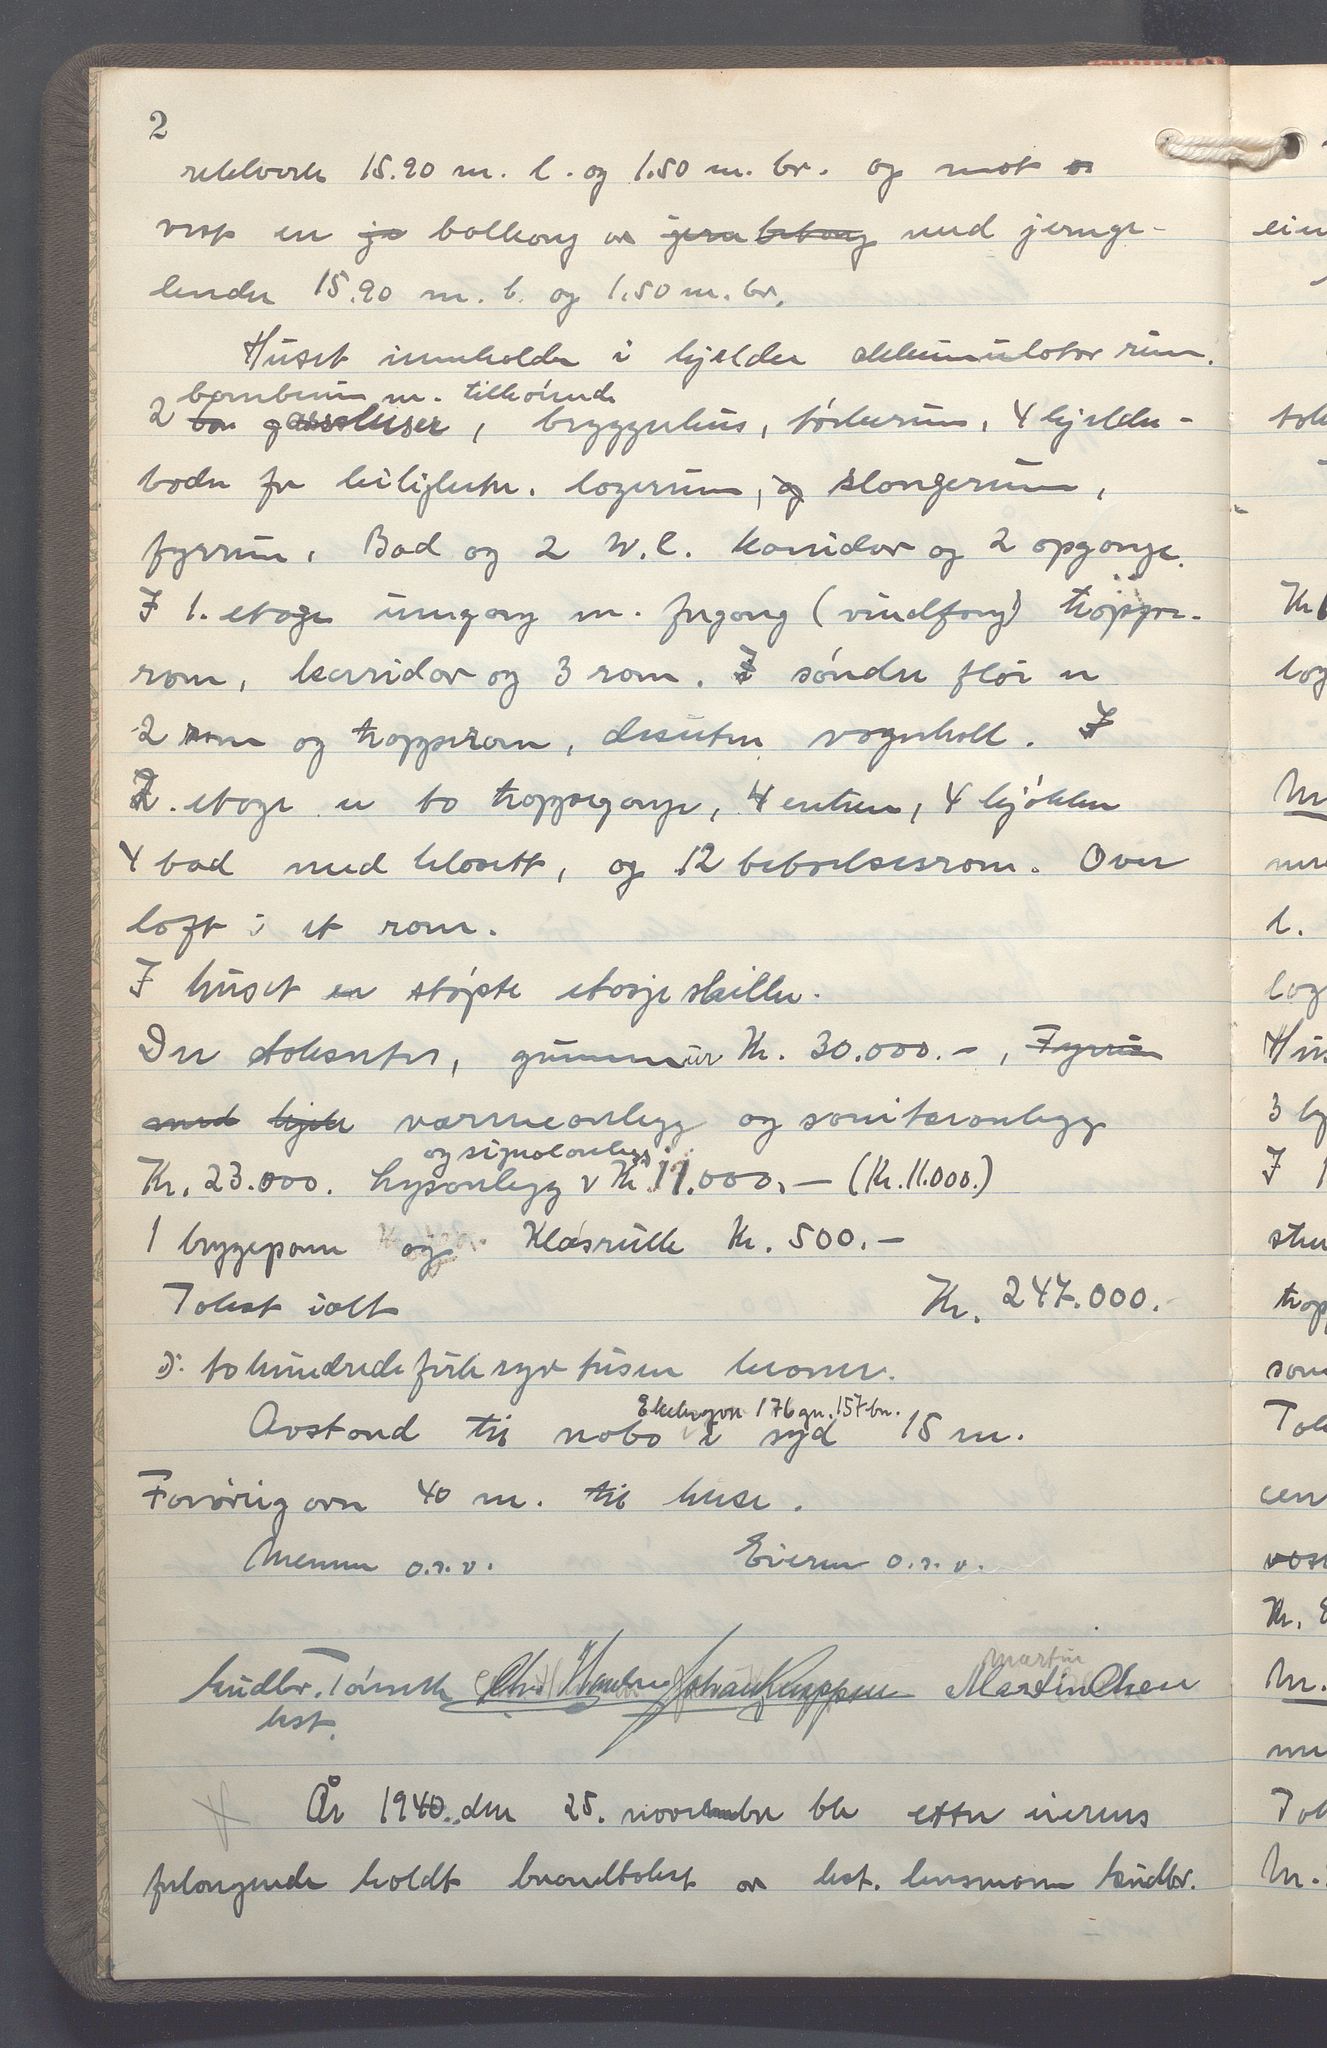 2
rekkverk 15.90 m. l. og 1.50 m. br. og mot
vest en balkong av jern betong med jernge-
lender 15.90 m. l. og 1.50 m. br.
Huset inneholder i kjelder akkumulator rum.
bomberum m. tilhørende
2 gassluser, bryggerhus, tørkerum, 4 kjelder-
boder for leiligheter. lagerum, og slangerum,
fyrrum. Bad og 2 W.C. korridor og 2 opgange.
I 1. etage inngang m. forgang (vindfang) trappe-
rom, korridor og 3 rom. I søndre fløi er
2 rom og trapperom, desuten vognhall. I
2. etage er to trappegange, 4 entreer, 4 kjøkken
4 bad med klosett, og 12 beboelsesrom. Over
loft i et rom.
I huset er støpte etasjeskiller.
Der taksertes, grunnmur Kr. 30.000.-, Fyrrum
med kjele varmeanlegg og saniteranlegg
og signalanlegg
Kr. 23.000. Lysanlegg v Kr 11.000.- (Kr. 11.000.)
1 bryggepanne og Klæsrulle Kr. 500.-
Takst ialt Kr. 247.000.
ɔ: tohundrede firti syv tusen kroner.
Ekehugen 176 gn. 157 bn.
Avstand til nabo i syd 15 m.
Forøvrig over 40 m. til huse.
Mennene o.r.v. Eieren o.r.v.
Gudbr. Tømte Johan Kuppen Martin Olsen
Martin
kst.
År 1940. den 25. november ble etter eierens
forlangende holdt brandtakst av kst. lensmann Gudbr.